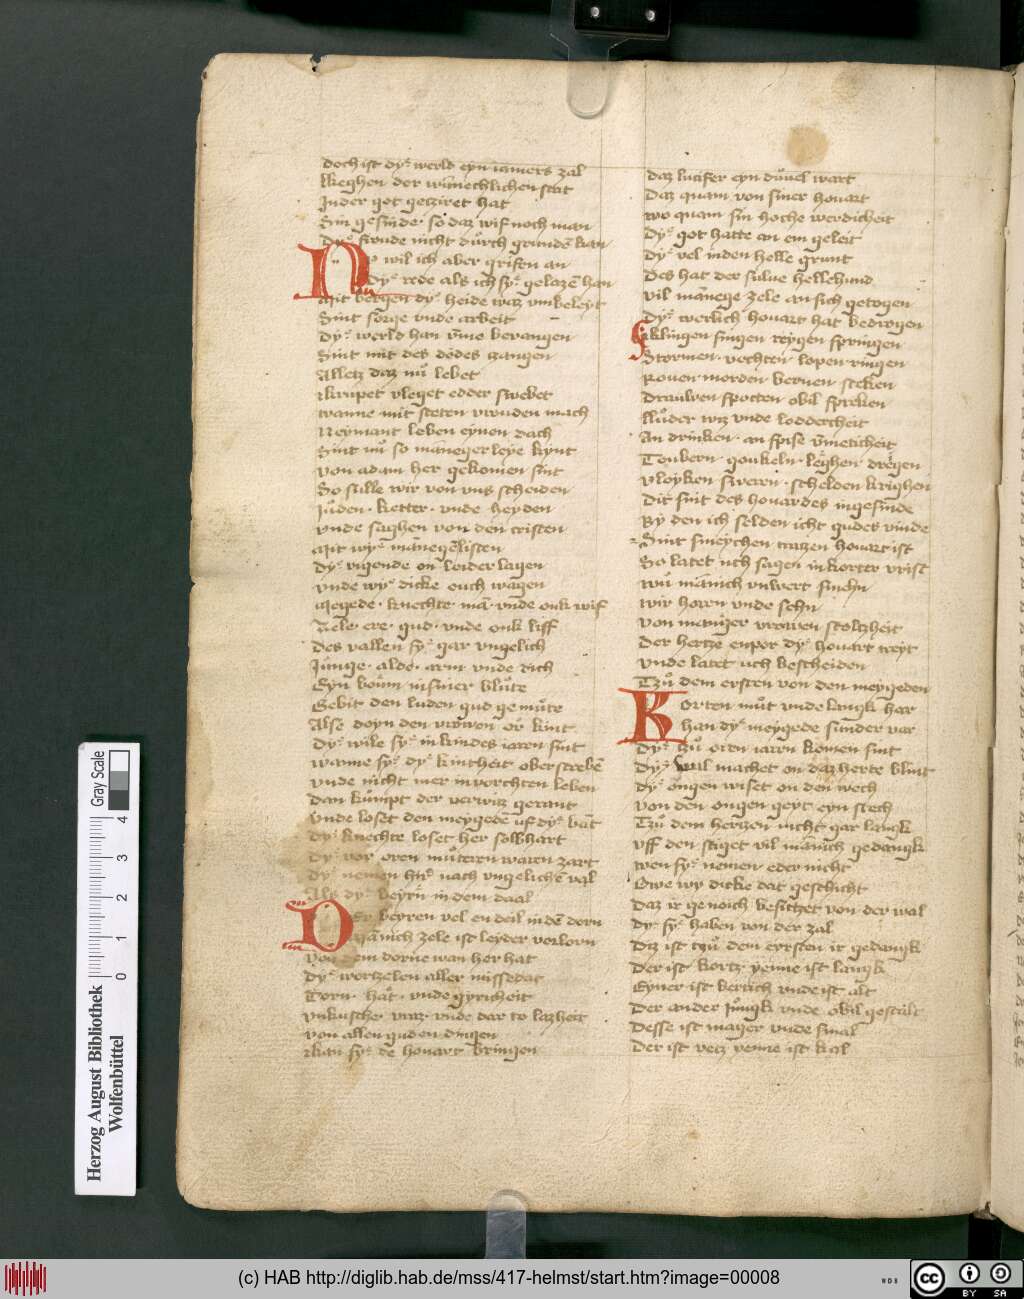 Doch ist dyͤ werld eyn iamers zal
Keghen der wūnechlichen stat
In der got getziret hat
Sin gesinde · so daz wif noch man
Dyͤ froude nicht durch grunden̄ kan
Nu wil ich aber grifen an
Dyͤ rede als ich syͤ gelazē han
Mit bergen dyͤ heide waz vmbeleyt
Sint sorge vnde arbeit
Dyͤ werld han vme bevangen
Sint mit des dodes zangen
Alletz daz nuͦ lebet
krupet vleget edder swebet
wanne mit steten vrouden mach
Neymant leben eynen dach
Sint nuͦ so maneger leye kynt
von adam her gekomen sint
So sulle wir von vns scheiden
Juͦden · ketter · vnde heyden
vnde saghen von den cristen
Mit wyͤ manegē listen
Dyͤ vigende on leider lagen
vnde wyͤ dicke ouch wagen
Megede · knechte · mā · vnde ouk wif
Zele · ere · gud · vnde ouk liff
Des vallen syͤ gar vngelich
Junge · alde · arm · vnde rich
Eyn boum in siner bluͦte
Gebit den luden gud gemuͦte
Alse doyn den vrowen or kint
Dyͤ wile syͤ in kindes iaren sint
wanne syͤ dyͤ kintheit oberstrebē
vnde nicht mer in vorchten leben
Dan kumpt der verwitz gerant
vnde loset den meygedē uf dyͤ bāt
Dyͤ knechte loset her solbhart
Dyͤ vor oren muͦteren waren zart
Dyͤ nemen hirͤ nach vngelichē val
Als dyͤ beyrn in dem daal
Der beyren vel en deil in dē dorn
Manich zele ist leyder vorlorn
Von dem dorne wan her hat
Dyͤ wortzelen aller missedat
Torn · hat · vnde gyricheit
vnkusche · vraz · vnde dar to lazheit
von allen guden dingen
kan syͤ de hovart bringen
Daz lucifer eyn duͦvel wart
Daz quam von siner hovart
wo quam sin hoche werdicheit
Dyͤ got hatte an em geleit
Dyͤ vel in den helle grunt
Des hat der sulue hellehund
vil manege zele an sich getogen
Dyͤ werlich hovart hat bedrogen
klingen singen reygen springen
Stormen · vechten lopen ringen
Roven morden bernen steken
Drauwen spotten obil spreken
kluͦder wiz vnde loddercheit
An drinken · an spise vmeticheit
Toubern · goukeln · leghen · dregen
vloyken sweren · schelden krighen
Dit sint des hovardes ingesinde
By den ich selden icht gudes vinde
Sint smeychen tratzen hovart ist
So latet uch sagen in korter vrist
wuͦ manich vnlvert sinehn
wir horen vnde sehn
von meniger vrowen stoltzheit
Der hertze enpor dyͤ hovart treyt
vnde latet uch bescheiden
Tzuͦ dem ersten von den meygeden
Korten muͦt vnde langk har
han dyͤ meygede sunder var
Dyͤ tzuͦ oren iaren komen sint
Dyͤ wal machet on daz herte blint
Dyͤ ougen wiset on den wech
von den ougen geyt eyn stech
Tzuͦ dem hertzen nicht gar langk
vff den stiget vil manich gedangk
wen syͤ nemen eder nicht
Owe wy dicke dat geschicht
Daz ir genoich besitzet von der wal
Dyͤ syͤ haben von der zal
Diz ist tzuͦ dem eyrsten ir gedangk
Der ist kortz yenne ist langk
Eyner ist kerrich vnde ist alt
Der ander Jungk vnde obil gestalt
Desse ist mager vnde smal
Der ist vetz yenne ist kal
Gray Scale
4
3
2
1
0
Herzog August Bibliothek
Wolfenbüttel
(c) HAB http://diglib.hab.de/mss/417-helmst/start.htm?image=00008
WDB
cc
BY SA